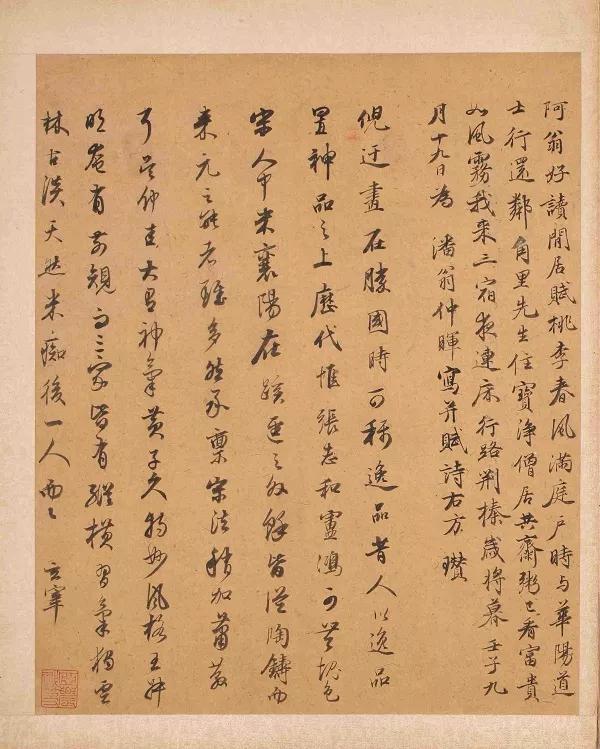 阿翁好讀閒居賦桃李春風滿庭戶時與華陽道
士行還鄰角里先生住寶淨僧居共齋粥已看富貴
如風霧我來三宿夜連床行路荆榛歲將暮壬子九
月十九日為 潘翁仲暉寫并賦詩右方 瓚
倪迂畫在勝國時可稱逸品昔人以逸品
置神品之上歷代惟張志和盧鴻可無愧色
宋人中米襄陽在蹊逕之外餘皆從陶鑄而
來元之能者雖多然承稟宋法稍加蕭散
耳吳仲圭大有神氣黃子久特妙風格王叔
明奄有前規而三家皆有縱橫習氣獨雲
林古淡天然米癡後一人而已 玄宰